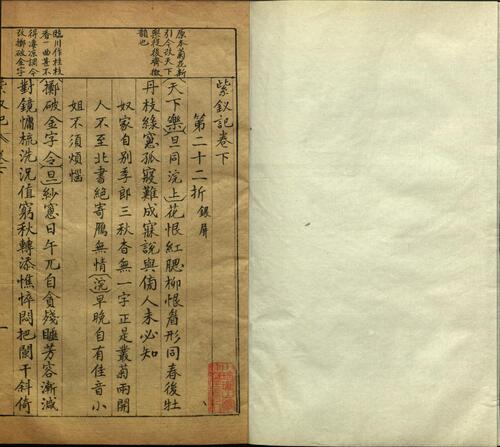 紫釵記卷下
第二十二折 銀屏
原本菊花新
引今改天下
樂從後齊微
韻也
天下樂旦同浣上花恨紅腮柳恨眉形同春後牡
丹枝綠窻孤寢難成寐說與傷人未必知
奴家自別季郎三秋杳無一字正是叢菊兩開
人不至北書絕寄鴈無情浣早晚自有佳音小
姐不須煩惱
臨川作桂枝
香一曲甚不
得凄凉調今
改擲破金字
擲破金字令旦紗窻日午兀自貪殘睡芳容漸減
對鏡慵梳洗況值窮秋轉添憔悴悶把闌干斜倚